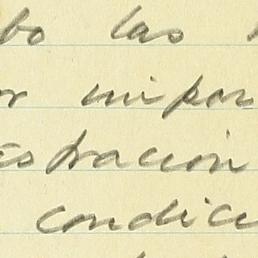 bo las
or impor
stración
condici